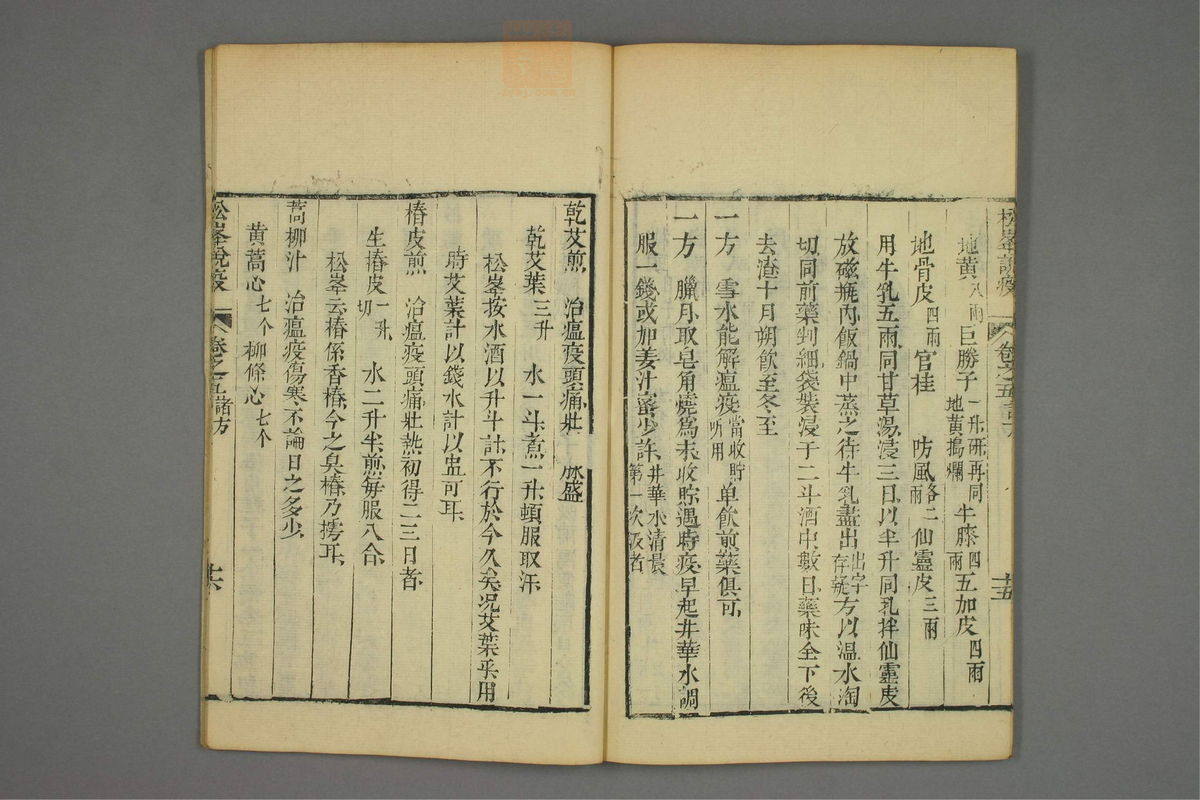 松峯說疫 卷之五 諸方 十五
地黃八兩 巨勝子一升研再同地黃搗爛 牛膝四兩 五加皮四兩
地骨皮四兩 官桂 防風各二兩 仙靈皮三兩
用牛乳五兩同甘草湯浸三日以半升同乳拌仙靈皮
放磁瓶內飯鍋中蒸之待牛乳盡出出字存疑方以溫水淘
切同前藥剉細袋裝浸于二斗酒中數日藥味全下後
去渣十月朔飲至冬至
一方 雪水能解瘟疫當收貯听用单飲煎藥俱可
一方 臘月取皂角燒為末收貯遇時疫早起井華水調
服一錢或加姜汁蜜少許井華水清晨第一次汲者
乾艾煎 治瘟疫頭痛壯 脉盛
乾艾葉三升 水一斗煮一升頓服取汗
松峯按水酒以升斗計不行於今久矣况艾葉乎用
時艾葉計以錢水計以盅可耳
椿皮煎 治瘟疫頭痛壯熱初得二三日者
生椿皮一升切 水二升半煎每服八合
松峯云椿係香椿今之臭椿乃樗耳
蒿柳汁 治瘟疫傷寒不論日之多少
黃蒿心七个 柳條心七个
松峯說疫 卷之五諸方 十六